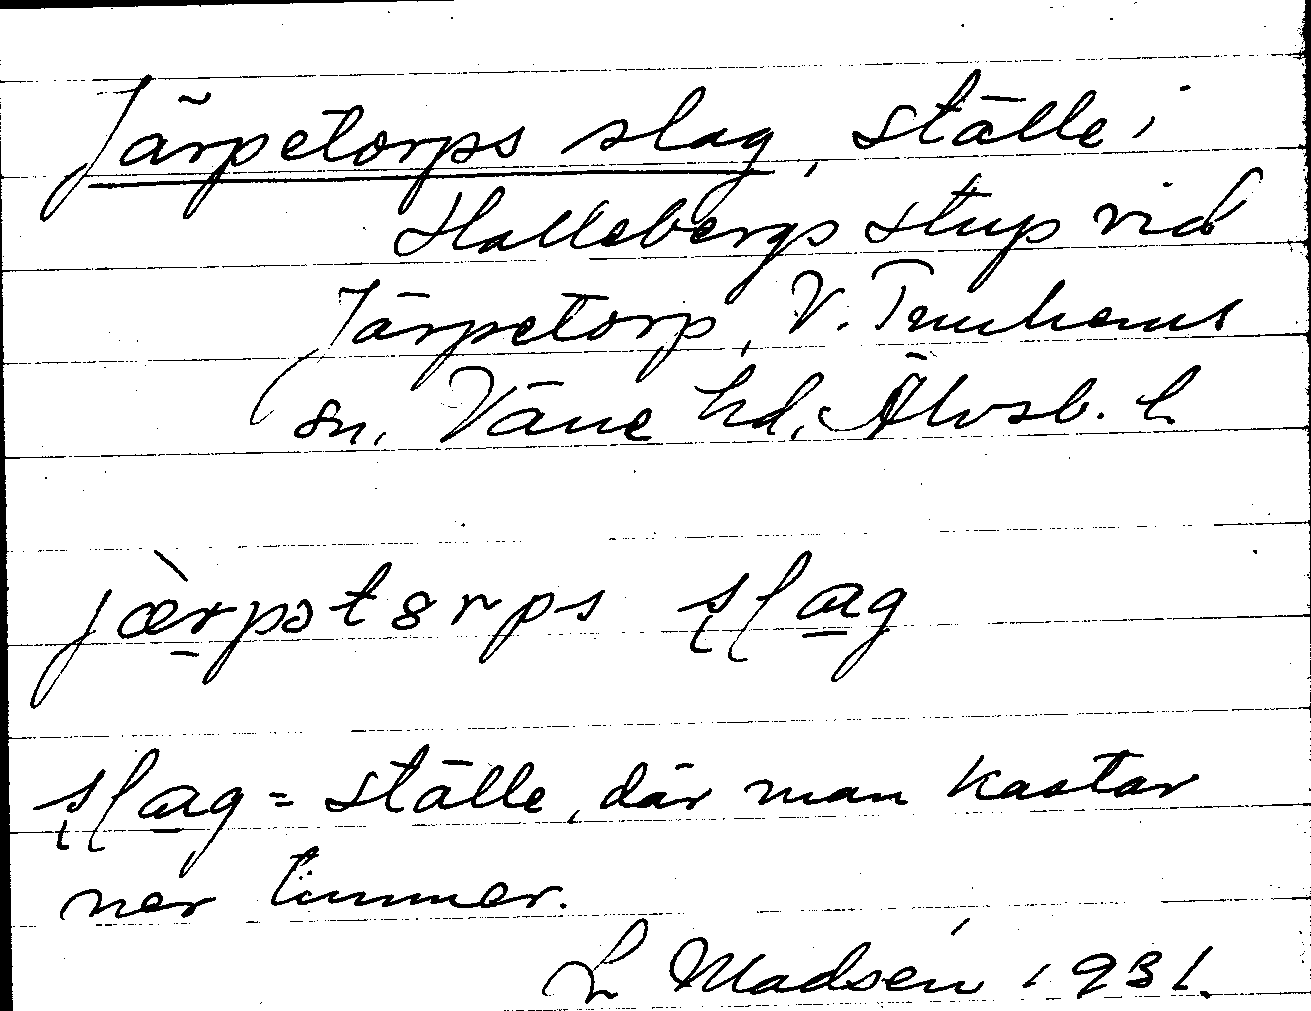 Järpetorps slag, ställe i
Hallebergs stup vid
Järpetorp, V. Tunhems
sn, Väne hd, Älvsb. l.
jæ̀rpətɞrps ʂɭag
ʂɭag = ställe, där man kastar
ner timmer.
L Madsén 1931.